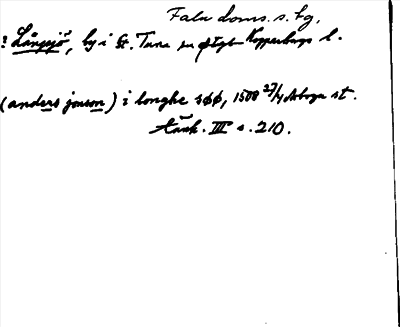 Falu doms. s. tg.
? Långsjö, by i St. Tuna sn Kopparbergs l.
(anders jonson) i longhe søø, 1508 27/4 Arboga st.
tänk. III s. 210.